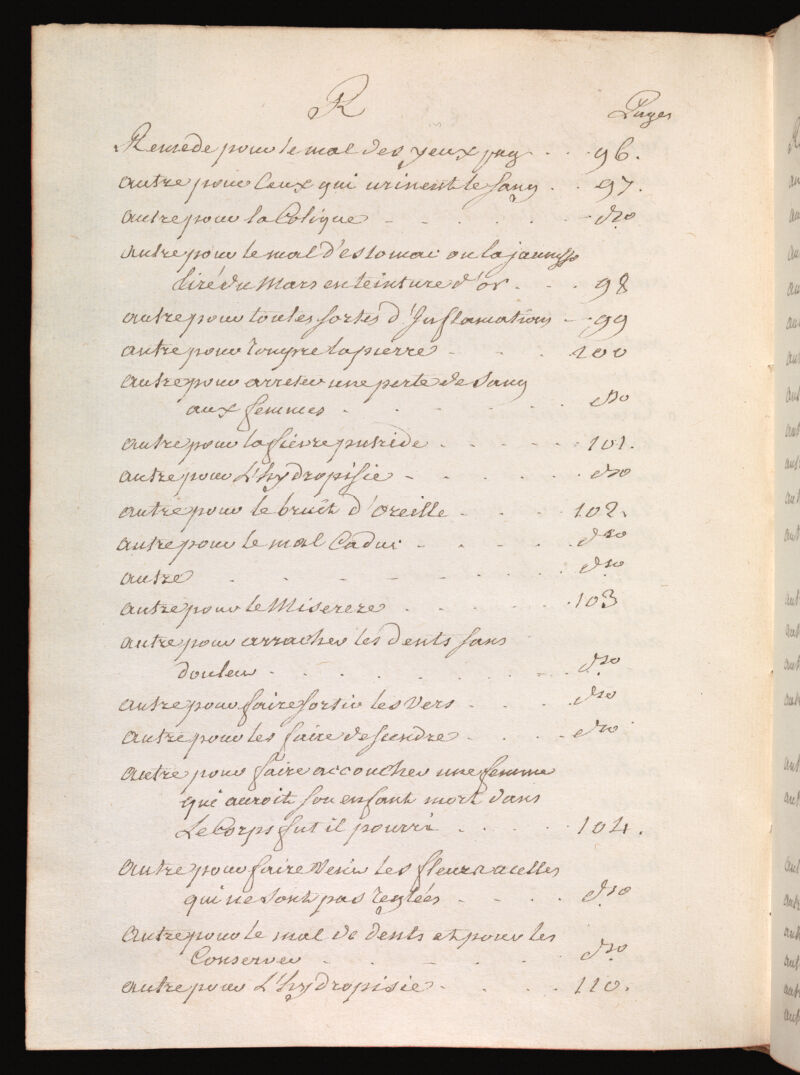 R
Pages
Remede pour le mal des yeux pag - - 96.
autre pour Ceux qui urinent le sang - - 97.
autre pour la Colique - - - - - - do
autre pour le mal d'estomac ou la jaunisse
tiré du Mars en teinture d'or - - - 98
autre pour toutes sortes d'Inflamations - 99
autre pour rompre la pierre - - - 100
autre pour arreter une perte de sang
aux femmes - - - - - - do
autre pour la fievre putride - - - - - 101.
autre pour L'hydropisie - - - - - do
autre pour le bruit d'Oreille - - - 102.
autre pour le mal Caduc - - - - do
autre - - - - - - - - do
autre pour le Miserere - - - - 103
autre pour arracher les dents sans
douleur - - - - - - - do
autre pour faire sortir les Vers - - - do
autre pour les faire descendre - - - do
autre pour faire accoucher une femme
qui auroit son enfant mort dans
Le Corps fut il pourri - - - - 104.
autre pour faire Venir les fleurs a celles
qui ne sont pas reglées - - - - do
autre pour le mal de dents et pour les
Conserver - - - - - - do
autre pour L'hydropisie - - - - 110.